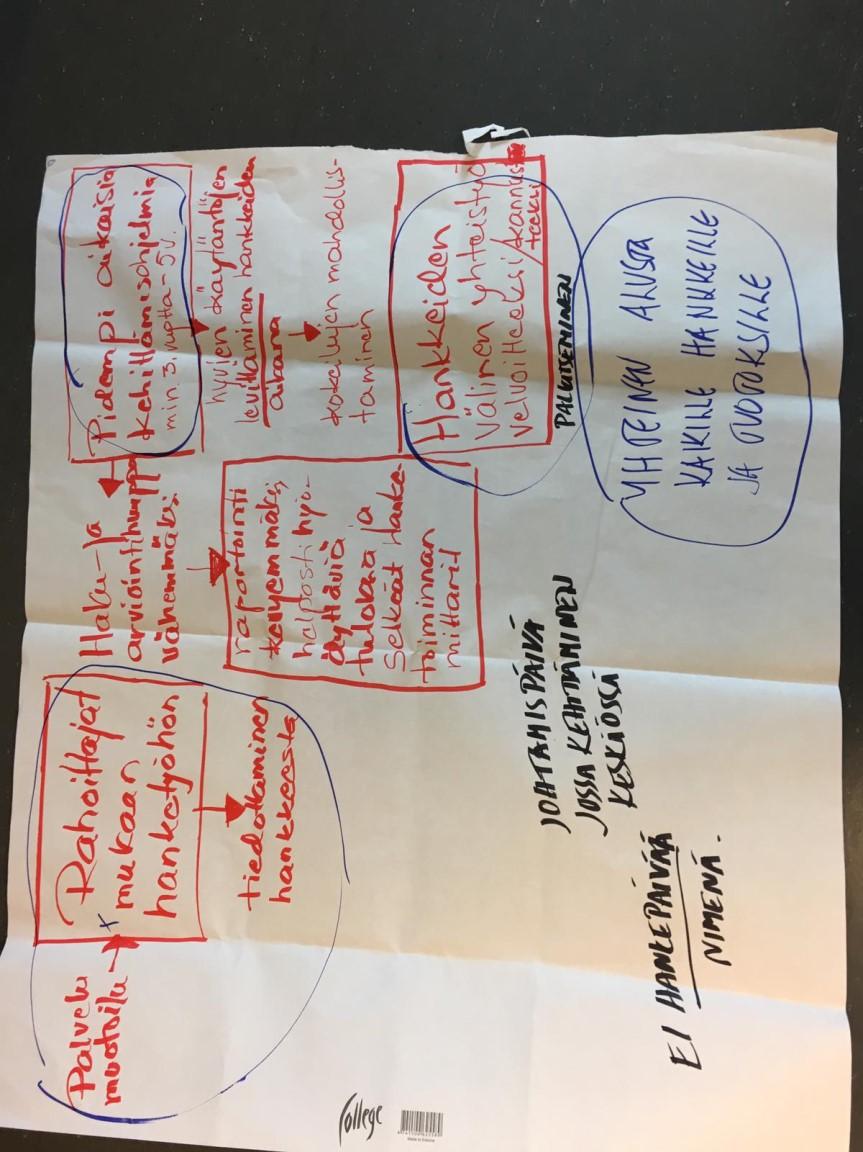 Palvelu
muotoilu
Rahoittajat
mukaan
hanketyöhön
tiedottaminen
hankkeesta
Haku- ja
arviointihumppa
vähemmäksi
raportointi
kevyemmäksi,
helposti hyö-
dyttäviä
tuloksia ja
Selkeät Hanke-
toiminnan
mittarit
Pidempi aikaisia
kehittämisohjelmia
min 3. vuotta - 5v.
hyvien käytäntöjen
levittäminen hankkeiden
aikana
kokeilujen mahdollis-
taminen
Hankkeiden
välinen yhteistyö
velvoitteeksi/kannus
teeksi
PALKITSEMINEN
YHTEINEN ALUSTA
KAIKILLE HANKKEILLE
JA TUOTOKSILLE
JOHTAMISPÄIVÄ
JOSSA KEHITTÄMINEN
KESKIÖSSÄ
EI HANKEPÄIVÄÄ
NIMENÄ.
College
Made in Estonia